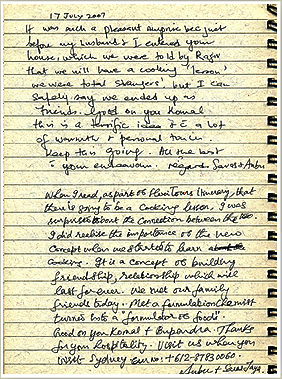 17 July 2007
It was such a pleasant surprise bec just
before my husband & I entered your
house, which we were told by Rajiv
that we will have a cooking 'lesson'
we were total strangers' but I can
safely say we ended up as
friends. Good on you Komal
this is a terrific idea & a lot
of warmth & personal touch
Keep this going. All the best
in your endeavour. regards
When I read, as part of Tours itinerary, that
there is going to be a Cooking lesson. I was
surprised about the connection between the
I did realise the importance of the new
Concept when we started to learn
cooking. It is a concept of building
friendship, relationship which will
last for ever. We met our family
friends today. Met a formulation chemist
turned into a "formulator of foods"
Good on you Komal & Bupandra. Thanks
for your hospitality. Visit us when you
visit Sydney our no: +612-87830060.